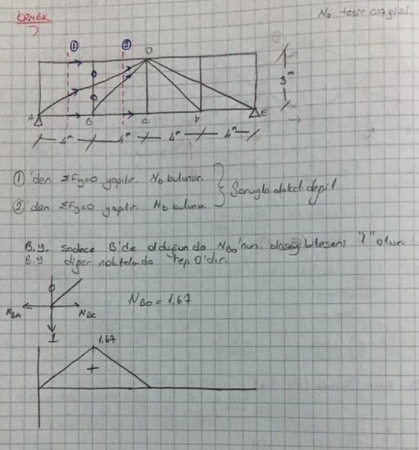 ÖRNEK
No tesir çizgisi
① ② O
3m
A B C D E
4m 4m 4m 4m
① 'den ΣFy=0 yapılır. No bulunur.
② 'den ΣFy=0 yapılır. No bulunur. } Soruyla alakalı değil
B.Y. sadece B'de olduğunda NBO'nun düşey bileşeni "1" olur.
B.Y diğer noktalarda hep 0'dır.
NBA NBC
NBO = 1,67
1
1.67
+